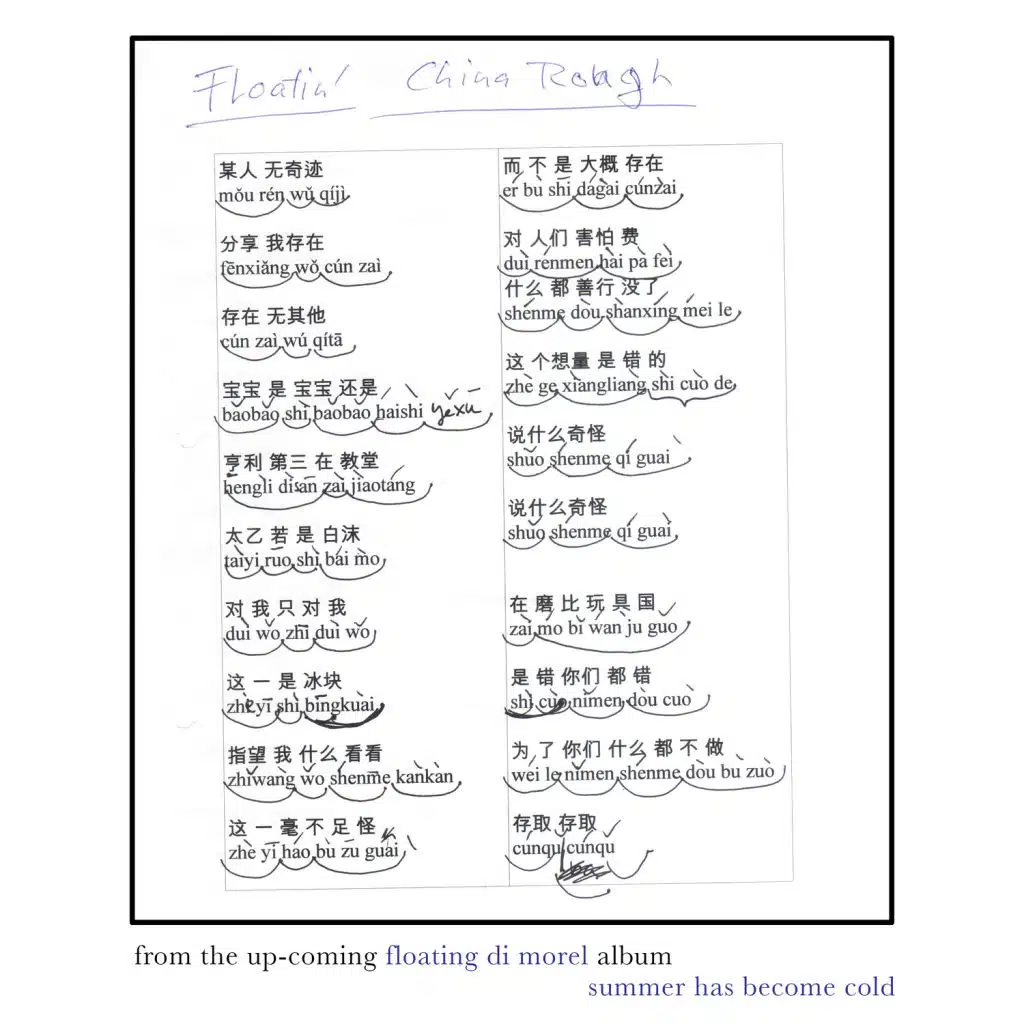 Floatin' China Rough
某人 无奇迹
mǒu rén wǔ qíjì
分享 我存在
fēnxiǎng wǒ cún zaì
存在 无其他
cún zaì wú qítā
宝宝 是 宝宝 还是
baobao shì baobao haishi yěxū
亨利 第三 在 教堂
hengli dìsān zaì jiaotáng
太乙 若 是 白沫
taìyi ruo shì bái mò
对 我 只 对 我
duì wǒ zhī duì wǒ
这 一 是 冰块
zhè yī shì bīngkuài
指望 我 什么 看看
zhǐwàng wǒ shénme kànkàn
这 一 毫 不 足 怪
zhè yī háo bù zú guài
而 不 是 大概 存在
ér bù shī dágài cúnzài
对 人们 害怕 费
duì rénmen hài pà feì
什么 都 善行 没了
shénme dòu shànxíng méi le
这 个想量 是 错 的
zhè ge xìangliàng shì cuò de
说什么奇怪
shǔo shénme qí guài
说什么奇怪
shuǒ shénme qí guài
在 磨 比 玩 具 国
zaì mó bǐ wàn ju guǒ
是 错 你们 都 错
shì cùo nǐmen dòu cuò
为 了 你们 什么 都 不 做
wéi le nǐmen shénme dòu bù zuò
存取 存取
cúnqǔ cúnqǔ
from the up-coming floating di morel album
summer has become cold